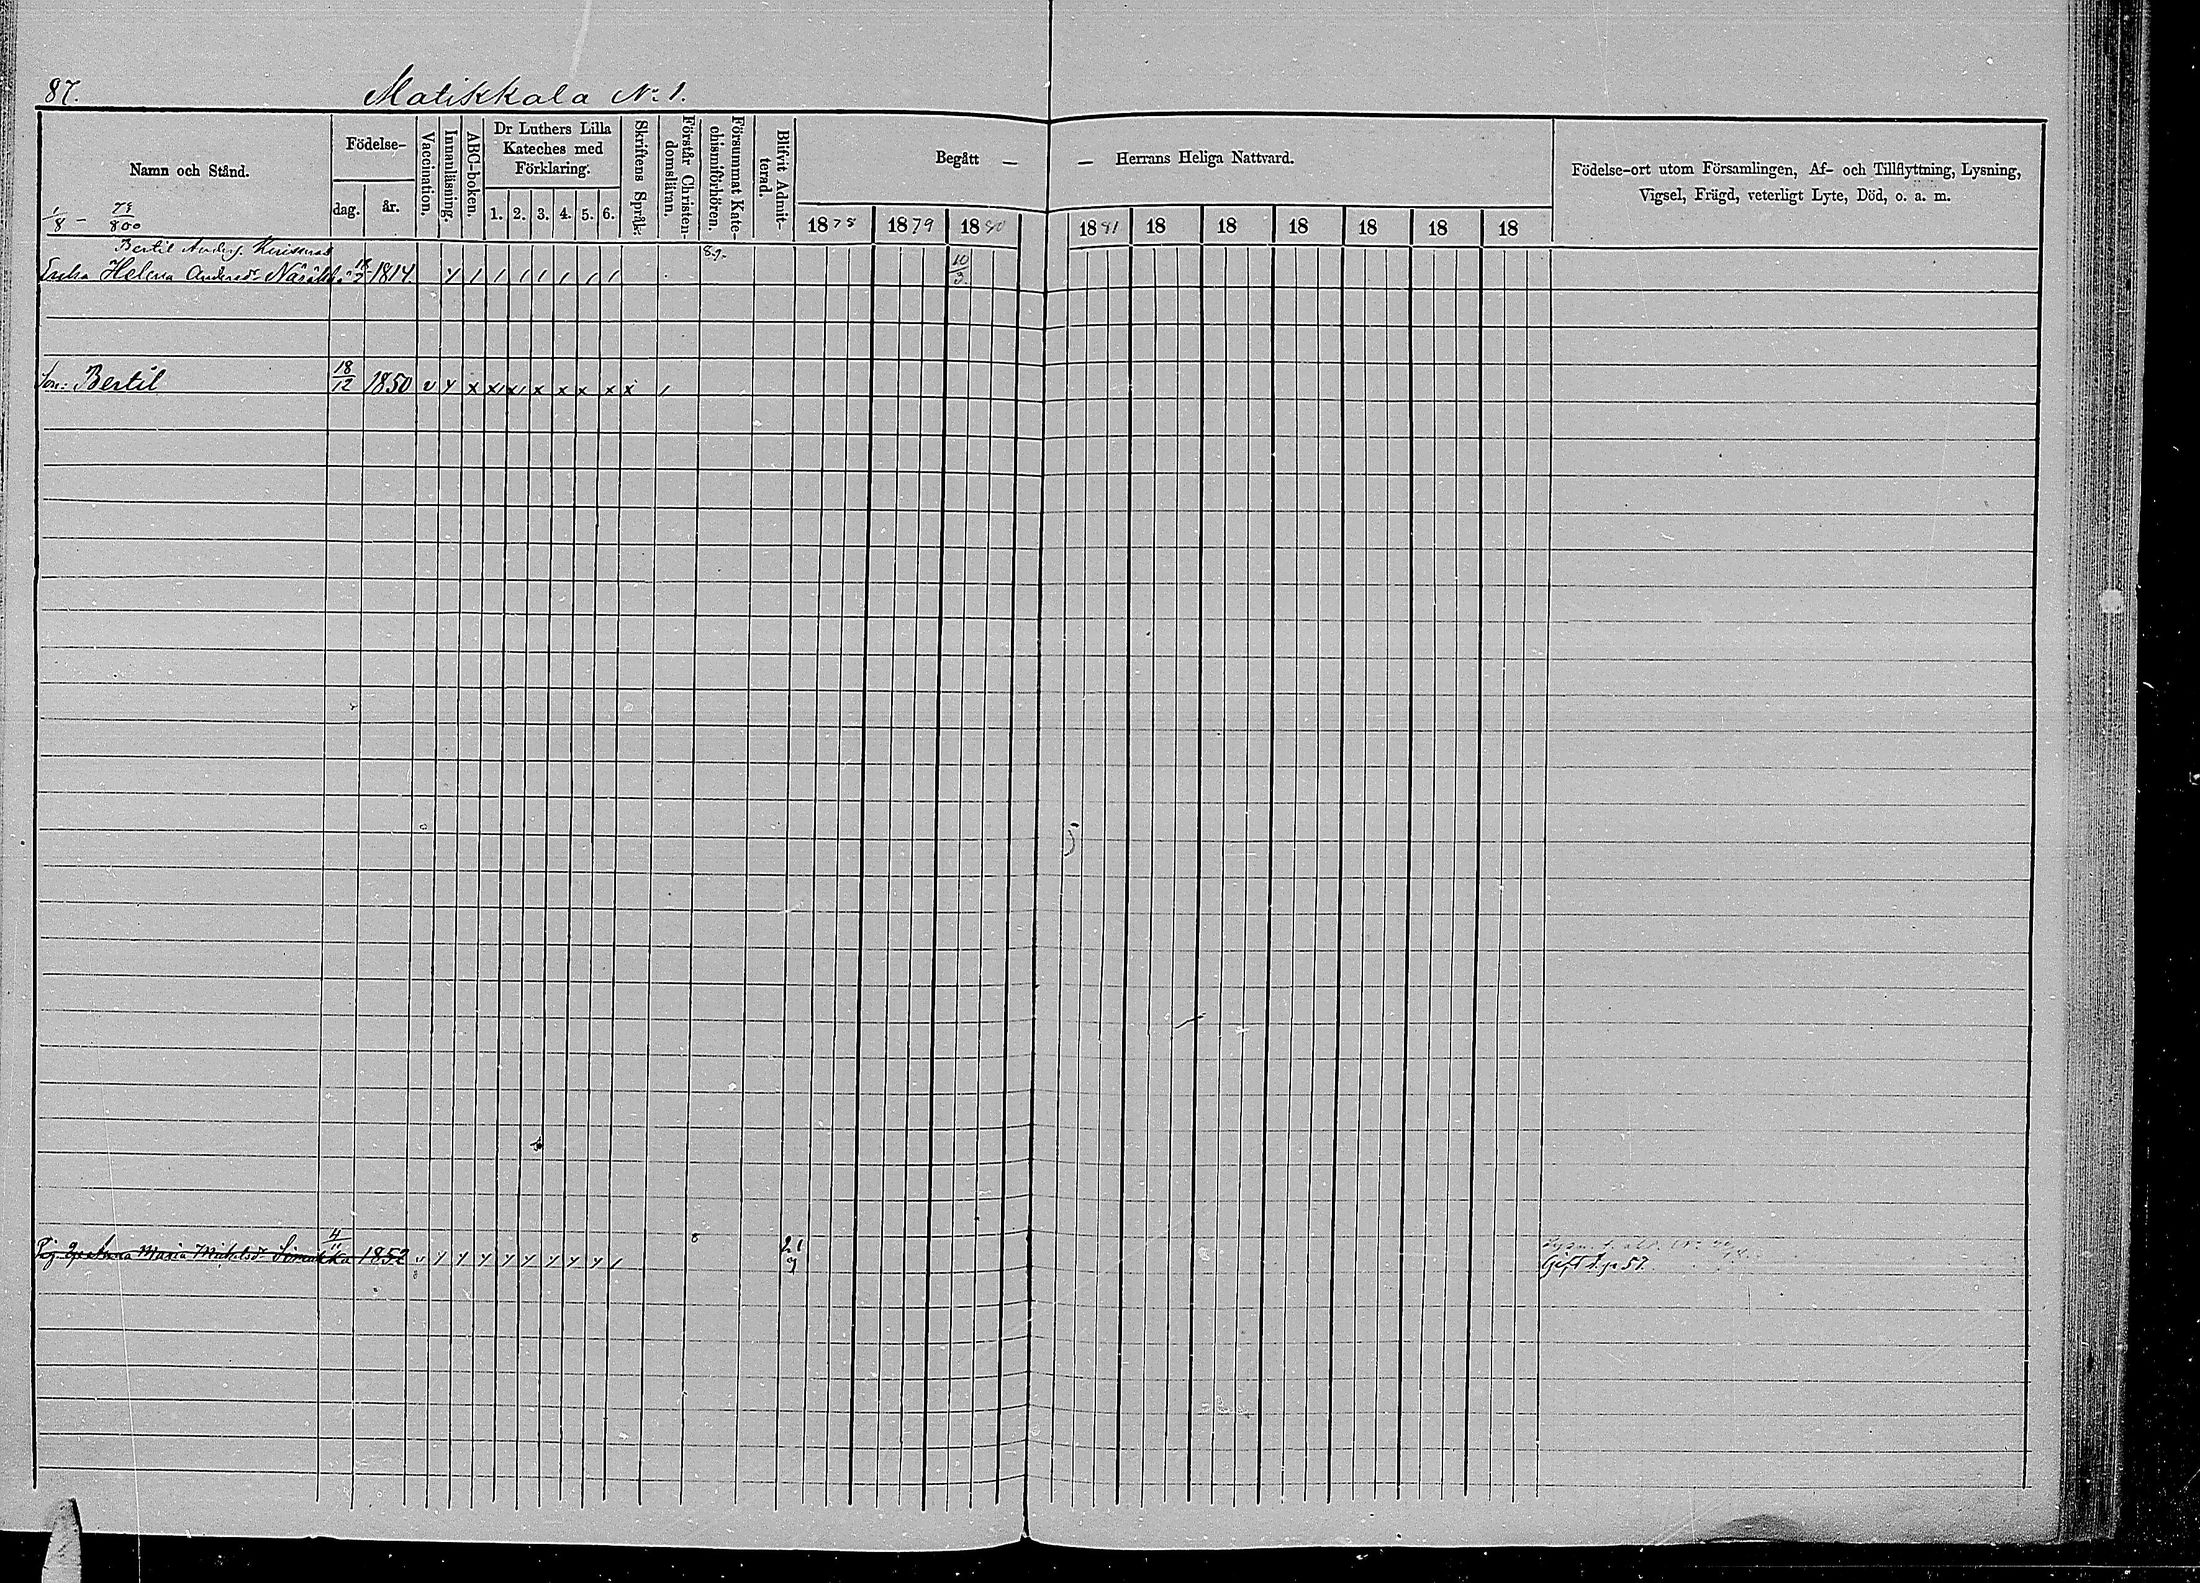 87. Matikkala No 1.
Namn och Stånd. Födelse- dag. år. Vaccination. Innanläsning. ABC-boken. Dr Luthers Lilla Kateches med Förklaring. 1. 2. 3. 4. 5. 6. Skriftens Språk. Förstår Christendomsläran. Försummat Katechismiförhören. Blifvit Admitterad. Begått — — Herrans Heliga Nattvard. Födelse-ort utom Församlingen, Af- och Tillflyttning, Lysning,
Vigsel, Frägd, veterligt Lyte, Död, o. a. m.
1878 1879 1880 1881 18 18 18 18 18 18
1/8 - 800
Bertil Anders.
Enka Helena Andersdr 18/2 1814. 10/3
Son: Bertil 18/12 1850 v
Pig. Maria Michelsdr 4/1 1852 v 21/9
Gift s. p. 57.